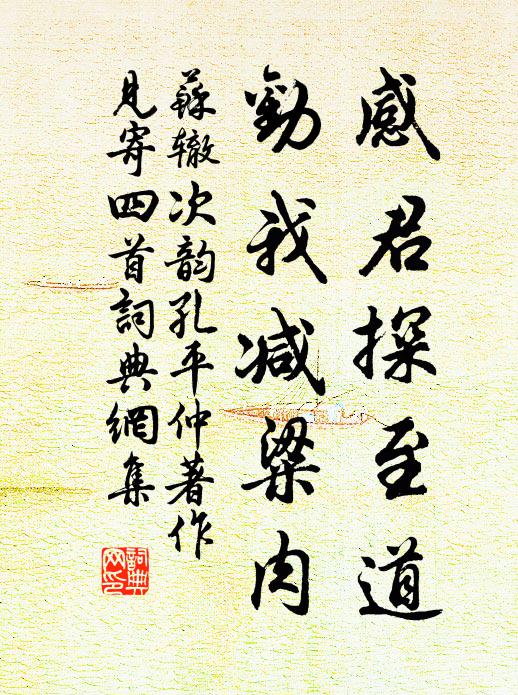 感君探至道
勸我减粱肉
蘇轍次韵孔平仲著作
見寄四首詞典網集
詞典网印